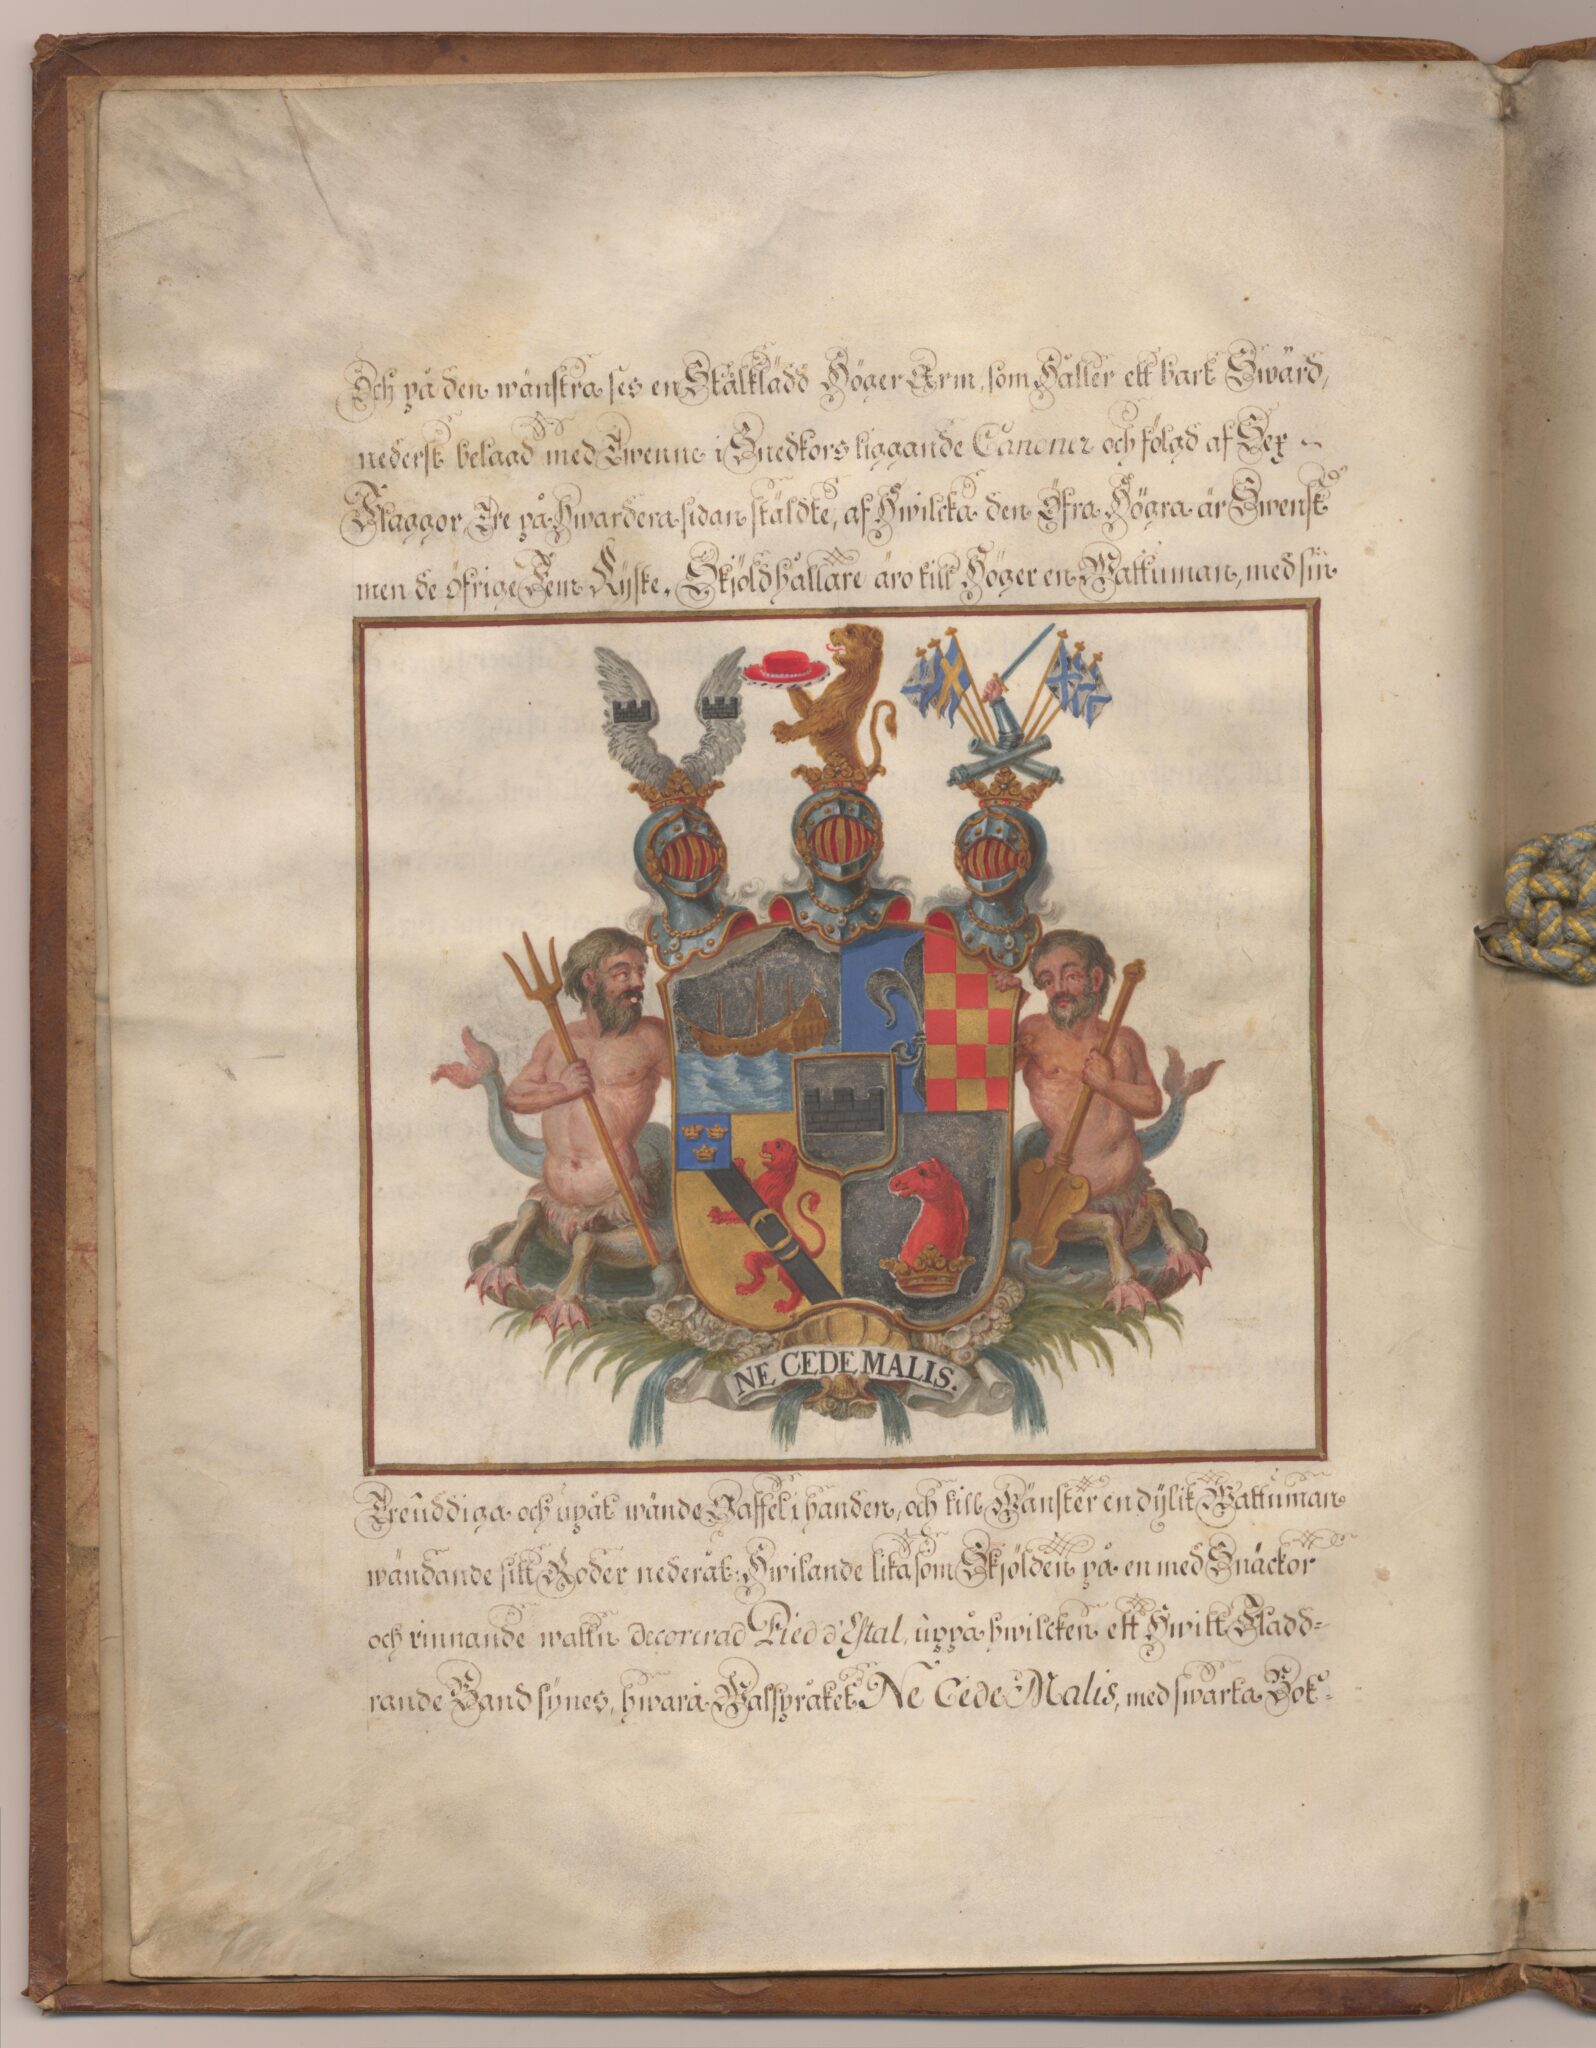 Och på den wänstra ses en Stålklädd Höger Arm, som Håller ett bart Swärd,
nederst belagd med Twenne i Snedkors liggande Canoner och följd af Sex
Flaggor, Tre på Hwardera sidan stäldte, af Hwilcka den Öfra Högra är Swensk
men de öfrige Fem Ryske. Skjöldhållare äro till Höger en Wattuman, med sin
NE CEDE MALIS.
Treuddiga och upåt wände Gaffel i handen, och till Wänster en dylik Wattuman
wändande sitt Roder nederåt: Hwilande lika som Skjölden på en med Snäckor
och rinnande wattn decorerad Pied d'Estal, uppå hwilcken ett Hwitt Fladd=
rande Band synes, hwarå Walspråket Ne Cede Malis, med swarta Bok=